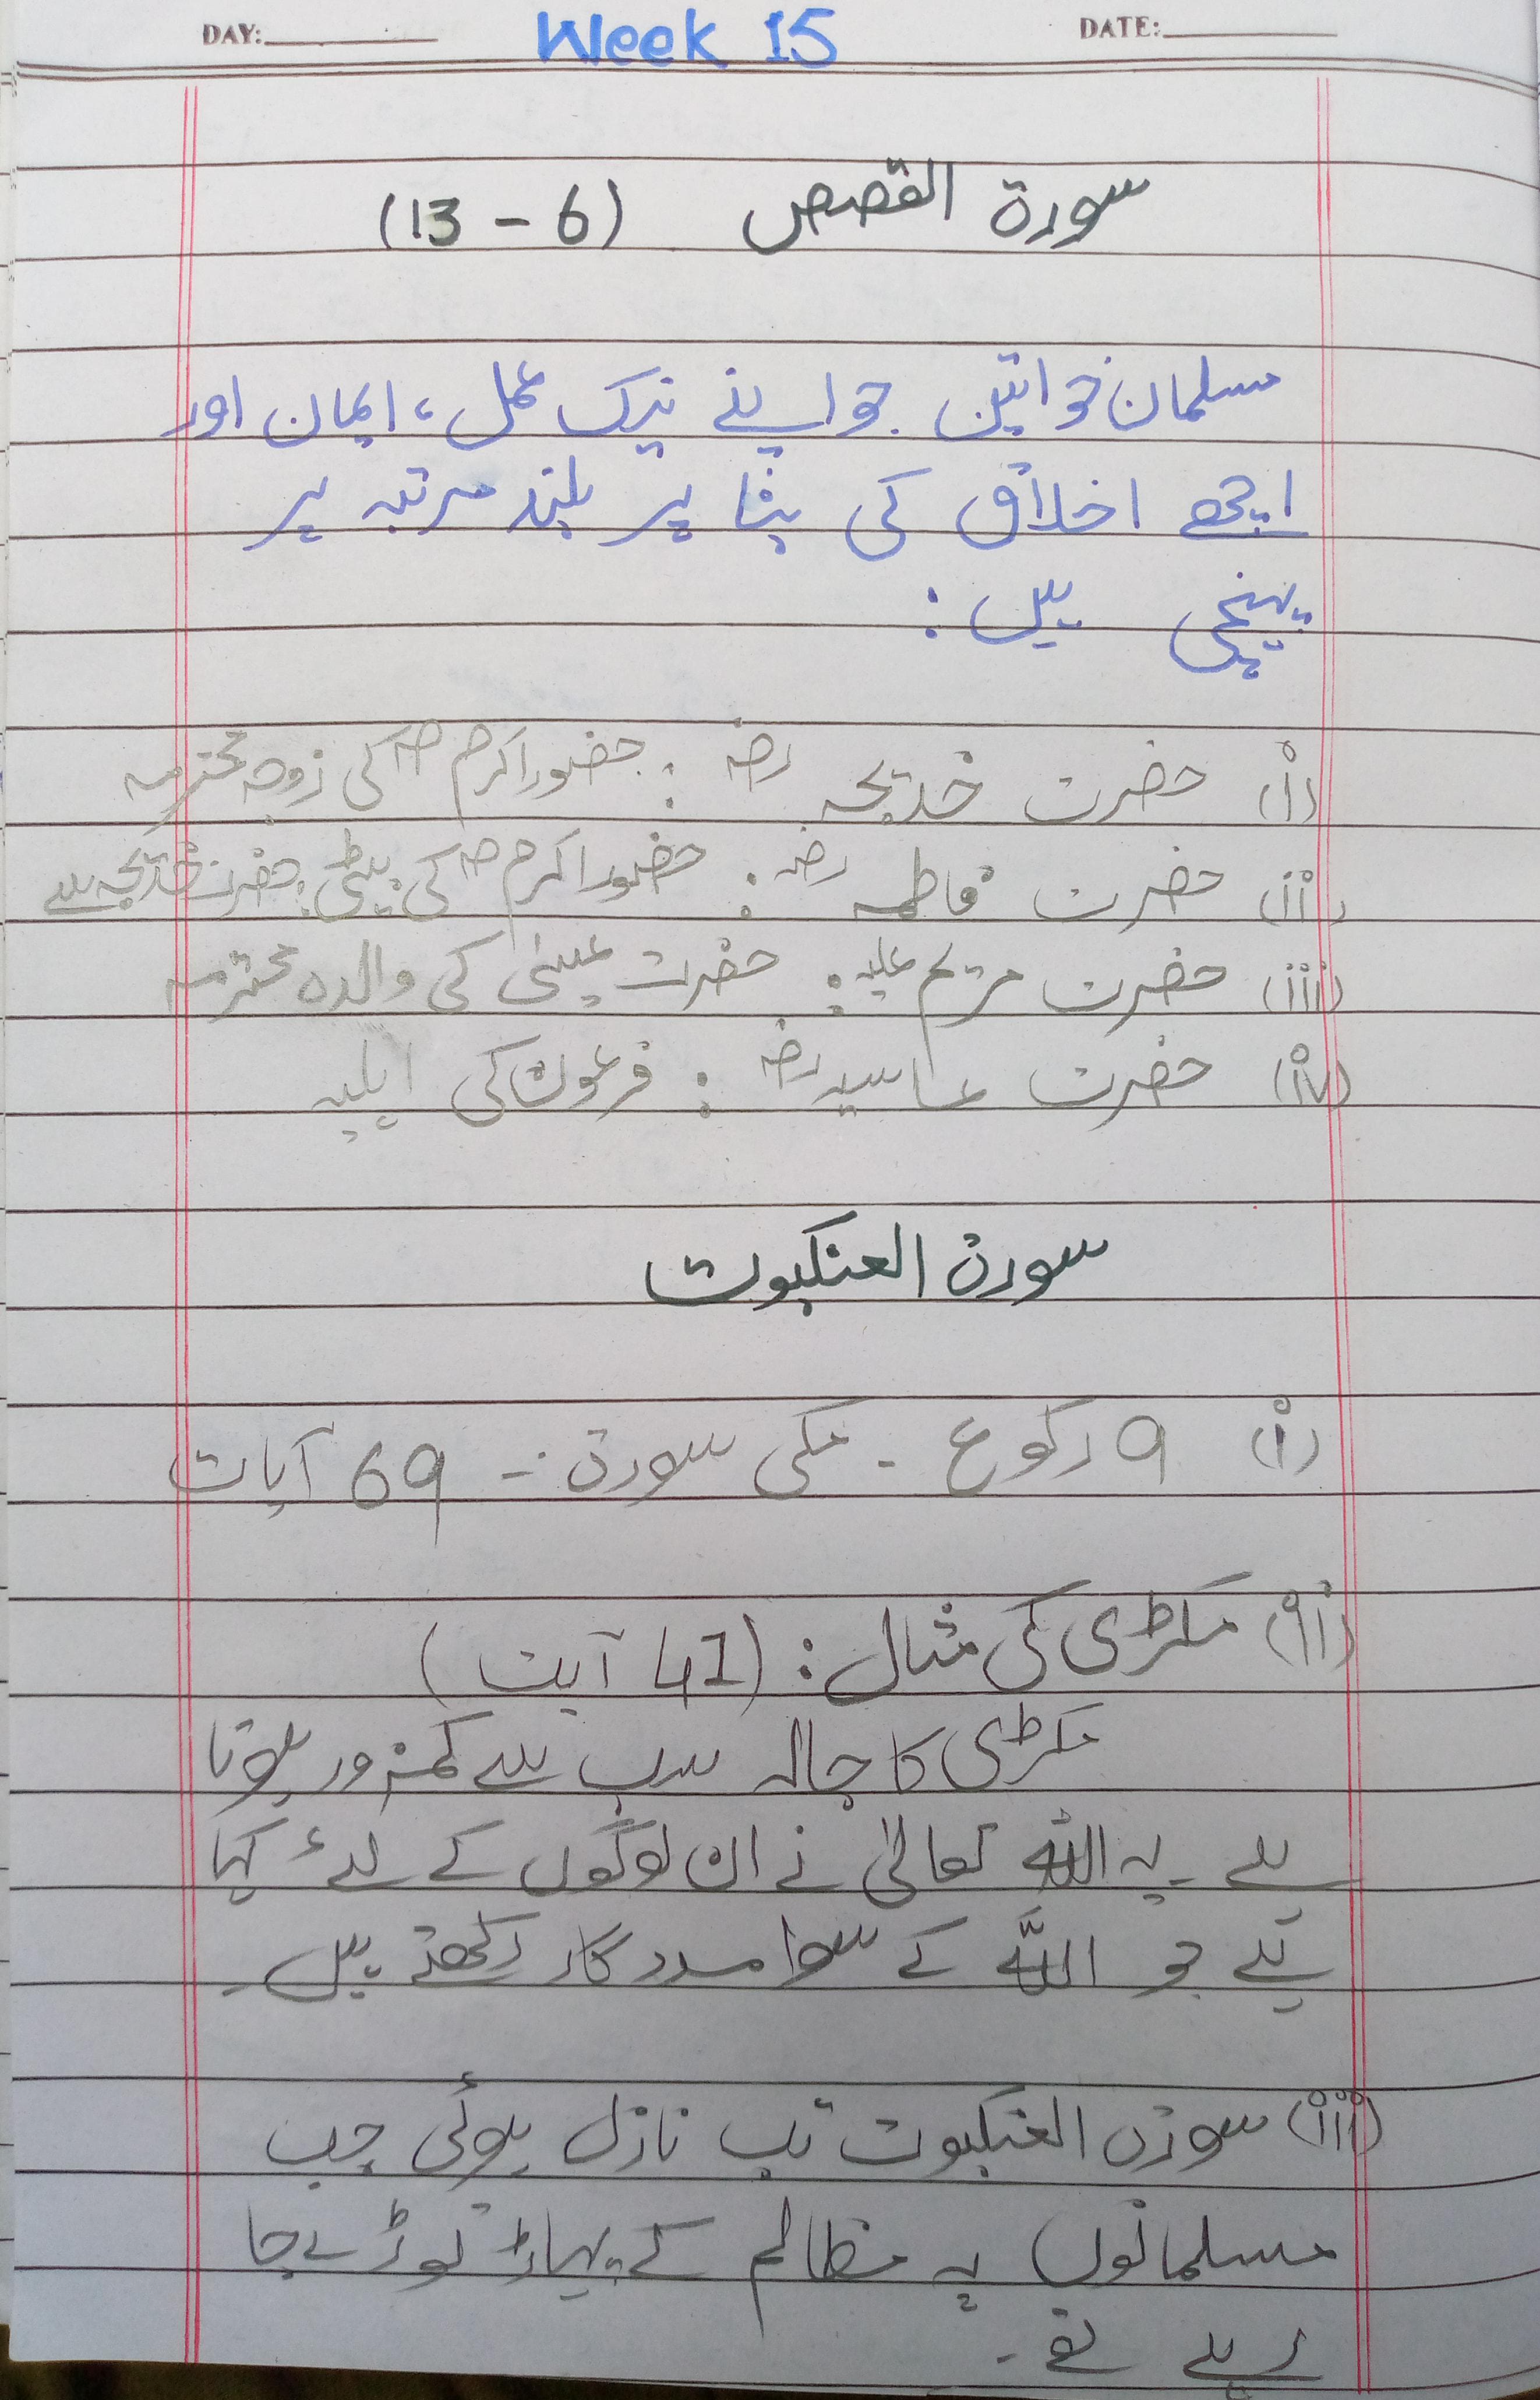 DAY: Week 15 DATE:
سورة القصص (6 - 13)
مسلمان خواتین جو اپنے نیک عمل، ایمان اور
اچھے اخلاق کی بنا پر بلند مرتبہ پر
پہنچی ہیں:
(i) حضرت خدیجہ رضہ : حضور اکرم صہ کی زوجہ محترمہ
(ii) حضرت فاطمہ رضہ : حضور اکرم صہ کی بیٹی، حضرت خدیجہ سے
(iii) حضرت مریم علیہ : حضرت عیسیٰ کی والدہ محترمہ
(iv) حضرت عاسیہ رضہ : فرعون کی اہلیہ
سورة العنکبوت
(i) 9 رکوع - مکی سورة :- 69 آیات
(ii) مکڑی کی مثال : (41 آیت)
مکڑی کا جالہ سب سے کمزور ہوتا
ہے یہ اللہ تعالیٰ نے ان لوگوں کے لئے کہا
ہے جو اللہ کے سوا مددگار رکھتے ہیں۔
(iii) سورة العنکبوت تب نازل ہوئی جب
مسلمانوں پہ مظالم کے پہاڑ توڑے جا
رہے تھے۔